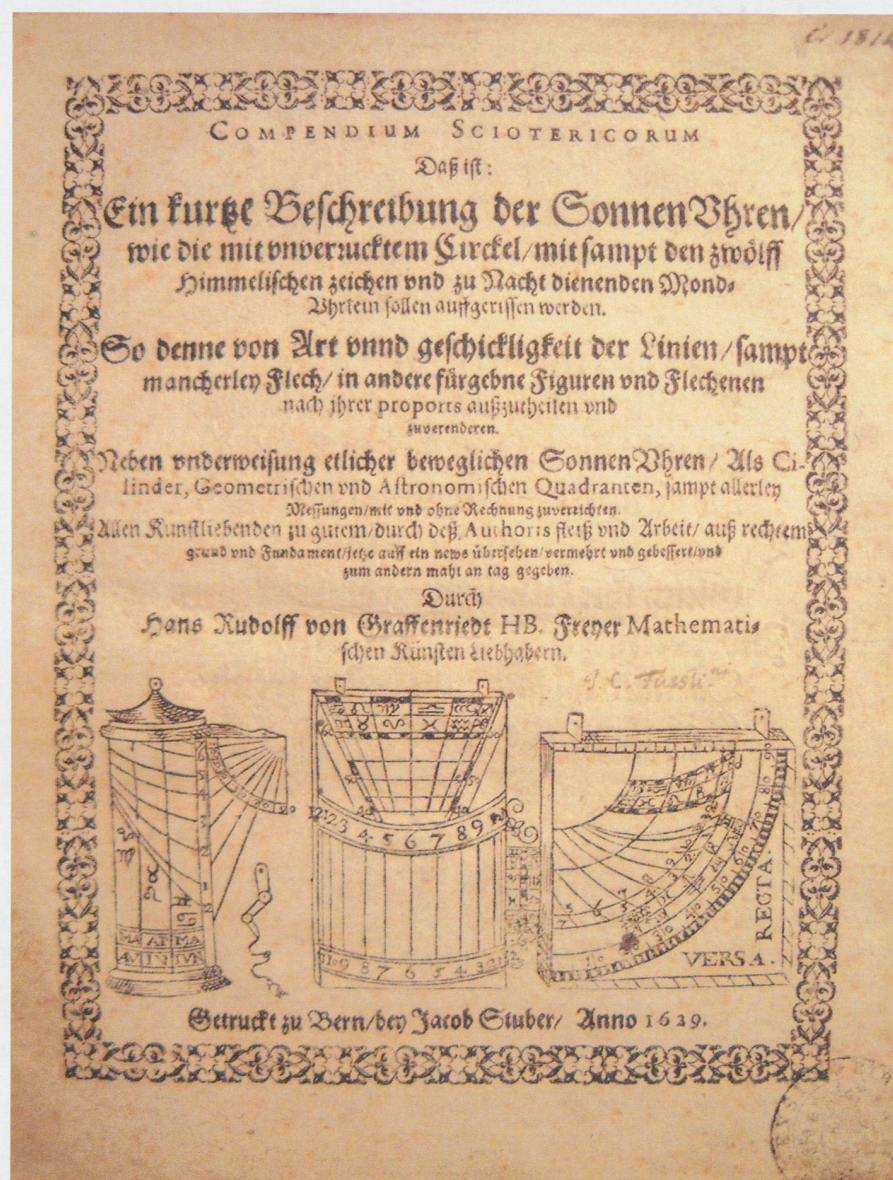 COMPENDIUM SCIOTERICORUM
Daß ist:
Ein kurtze Beschreibung der SonnenVhren/
wie die mit vnverrucktem Circkel/mit sampt den zwölff
Himmelischen zeichen vnd zu Nacht dienenden Mond-
Vhrlein sollen auffgerissen werden.
So denne von Art vnnd geschickligkeit der Linien/sampt
mancherley Flech/in andere fürgebne Figuren vnd Flechenen
nach jhrer proports außzutheilen vnd
zuverenderen.
Neben vnderweisung etlicher beweglichen SonnenVhren/ Als Ci-
linder, Geometrischen vnd Astronomischen Quadranten, sampt allerley
Messungen/mit vnd ohne Rechnung zuverrichten.
Allen Kunstliebenden zu gutem/durch deß Authoris fleiß vnd Arbeit/ auß rechtem
grund vnd Fundament/jetzo auff ein news übersehen/vermehrt vnd gebessert/vnd
zum andern mahl an tag gegeben.
Durch
Hans Rudolff von Graffenriedt HB. Freyer Mathemati-
schen Künsten Liebhabern.
12 1 2 3 4 5 6 7 8 9
9 8 7 6 5 4 3 2 1
RECTA.
VERSA.
Getruckt zu Bern/bey Jacob Stuber/ Anno 1629.